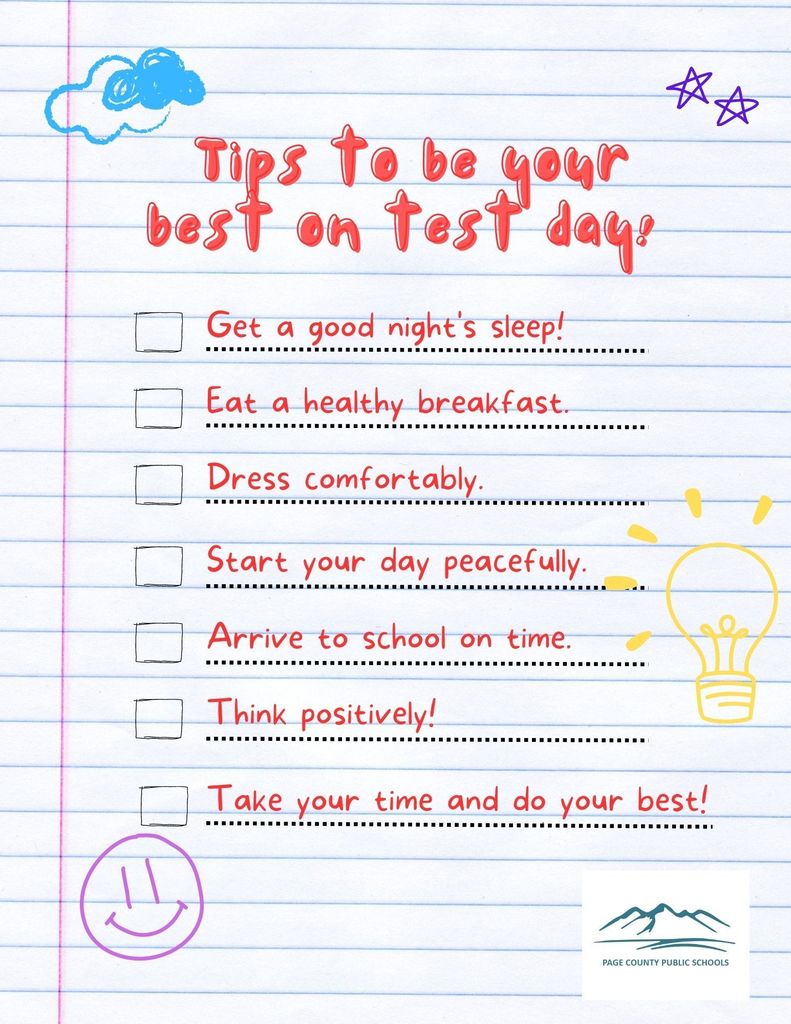 Tips to be your
best on test day!
Get a good night's sleep!
Eat a healthy breakfast.
Dress comfortably.
Start your day peacefully.
Arrive to school on time.
Think positively!
Take your time and do your best!
PAGE COUNTY PUBLIC SCHOOLS